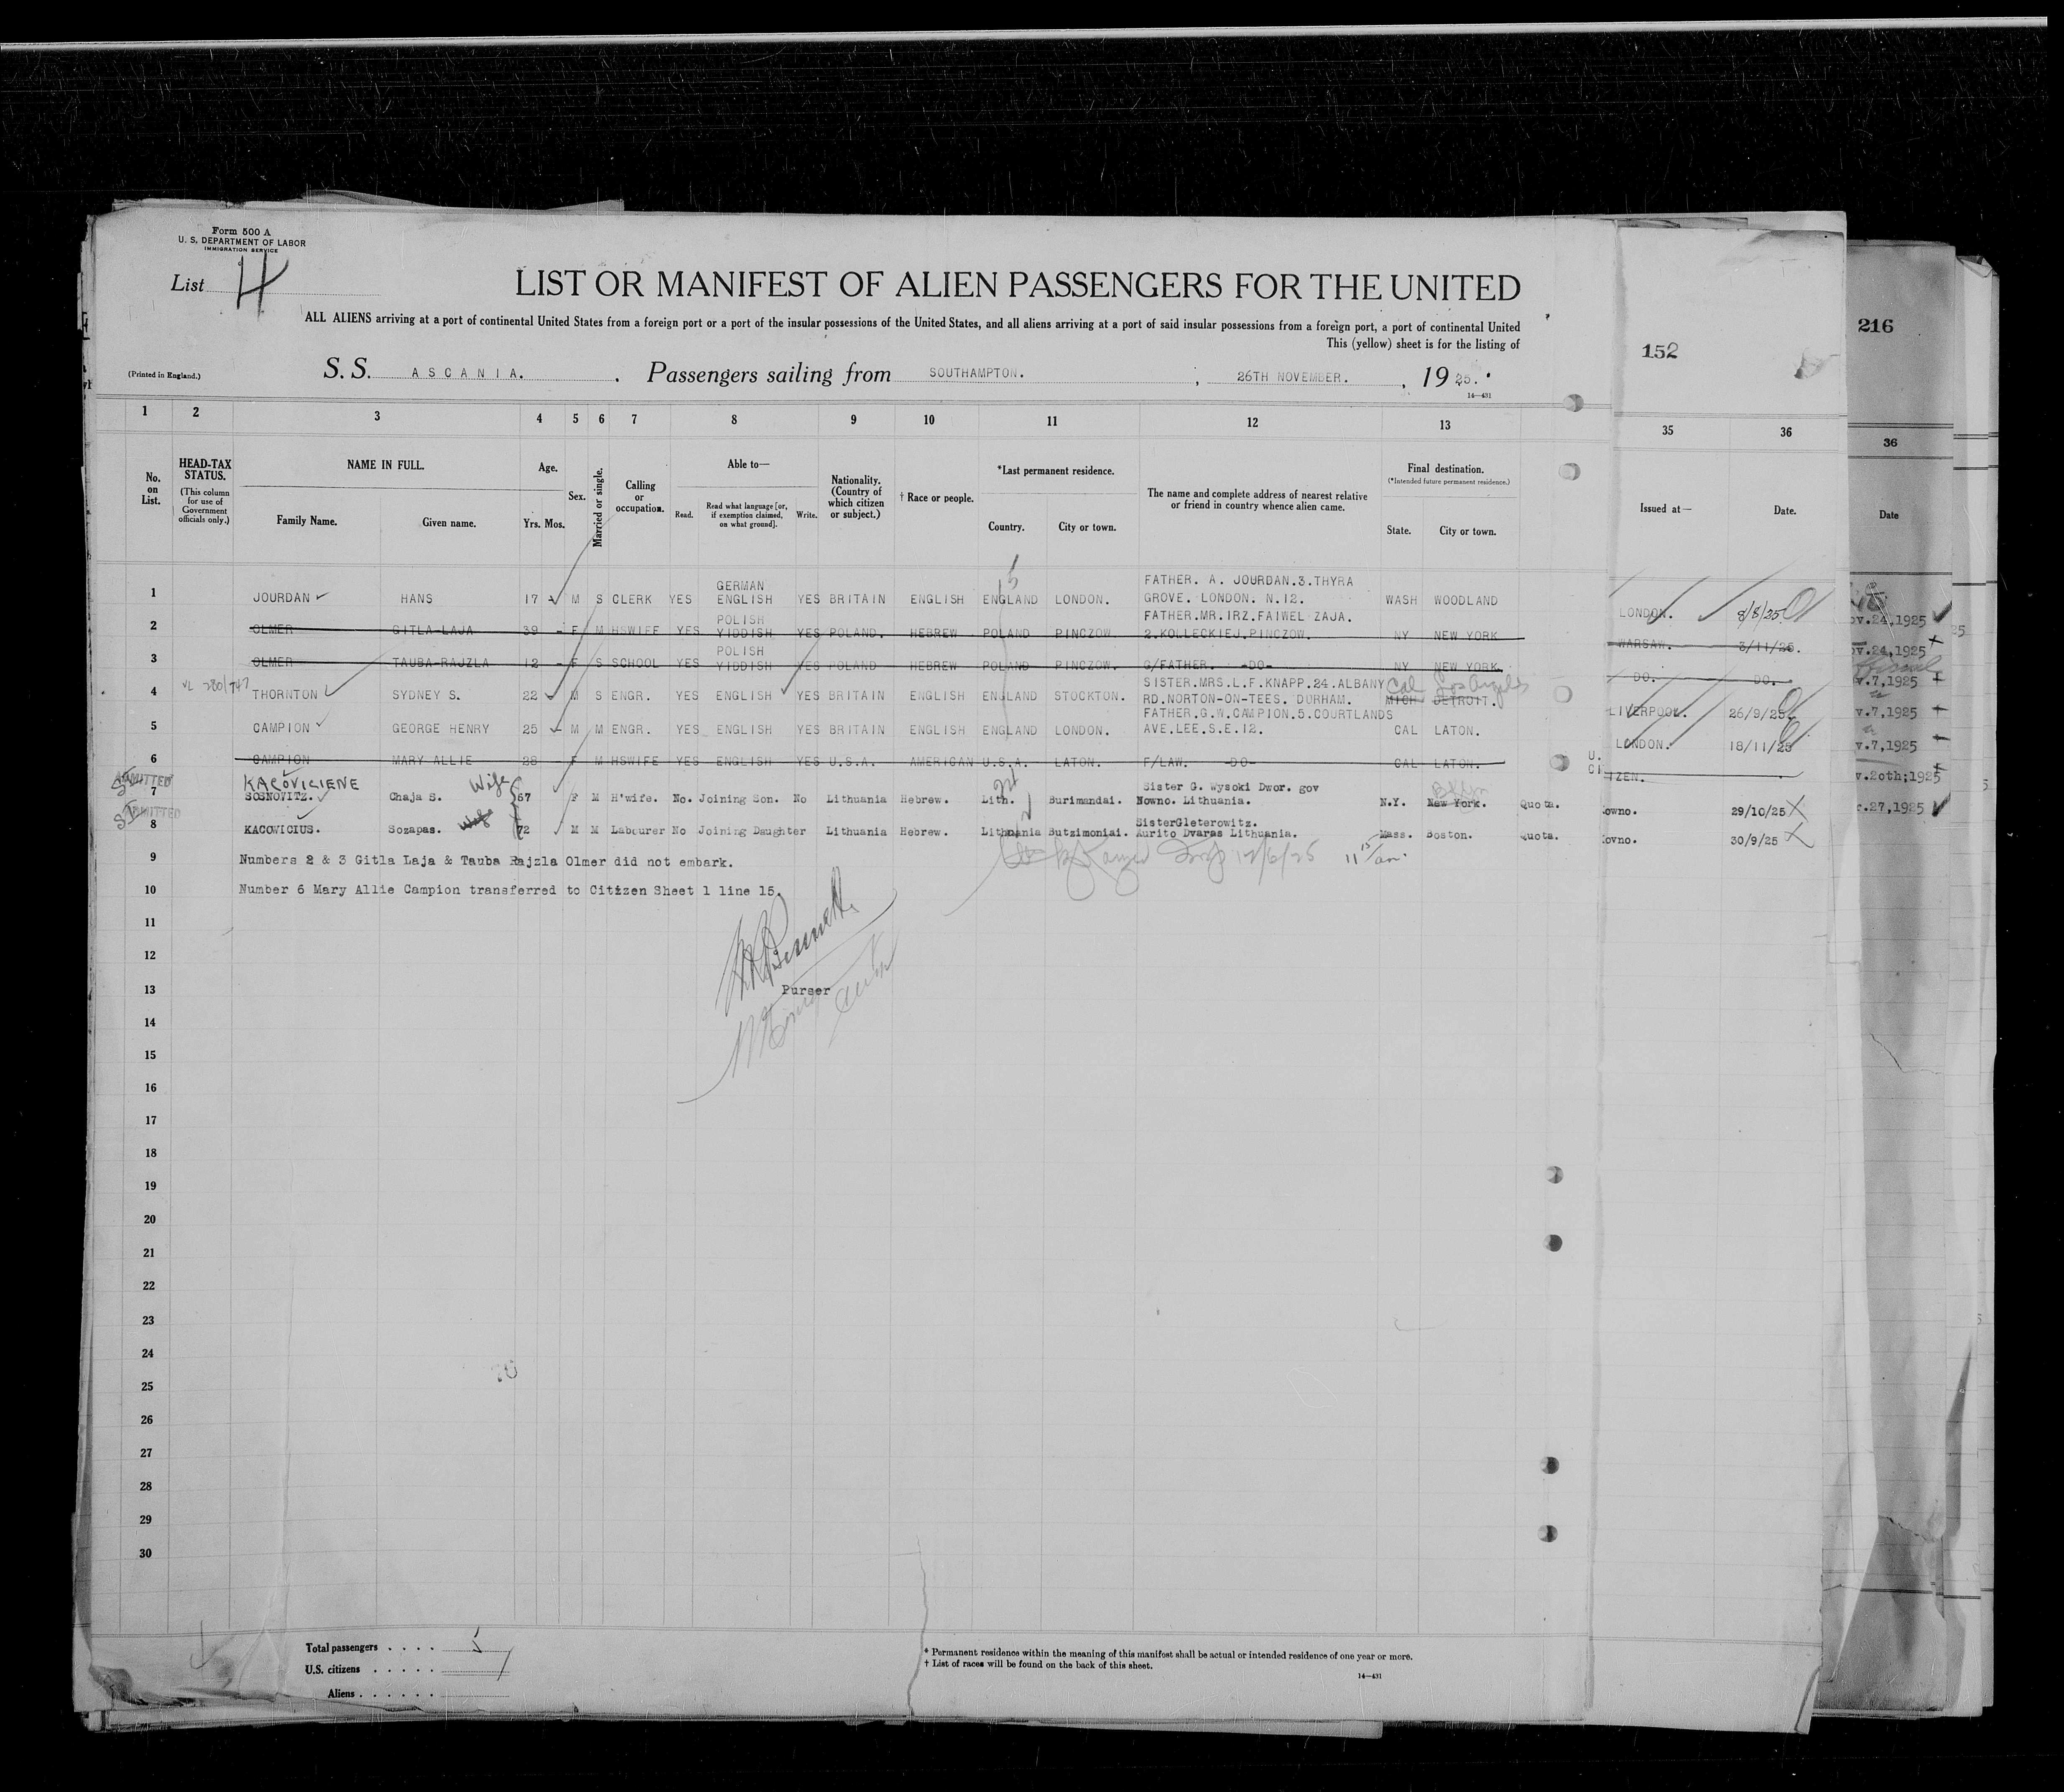 Form 500 A
U. S. DEPARTMENT OF LABOR
IMMIGRATION SERVICE
List 4
LIST OR MANIFEST OF ALIEN PASSENGERS FOR THE UNITED
ALL ALIENS arriving at a port of continental United States from a foreign port or a port of the insular possessions of the United States, and all aliens arriving at a port of said insular possessions from a foreign port, a port of continental United
This (yellow) sheet is for the listing of
(Printed in England.)
S. S. ASCANIA. , Passengers sailing from SOUTHAMPTON. , 26TH NOVEMBER. , 19 25.
14—431
152
216
1 2 3 4 5 6 7 8 9 10 11 12 13 35 36 36
No. on List.
HEAD-TAX STATUS.
(This column for use of Government officials only.)
NAME IN FULL.
Family Name. Given name.
Age.
Yrs. Mos.
Sex.
Married or single.
Calling or occupation.
Able to—
Read. Read what language [or, if exemption claimed, on what ground]. Write.
Nationality. (Country of which citizen or subject.)
† Race or people.
*Last permanent residence.
Country. City or town.
The name and complete address of nearest relative or friend in country whence alien came.
Final destination.
(*Intended future permanent residence.)
State. City or town.
Issued at— Date. Date
1 JOURDAN HANS 17 M S CLERK YES GERMAN ENGLISH YES BRITAIN ENGLISH ENGLAND LONDON. FATHER. A. JOURDAN.3.THYRA GROVE. LONDON. N.12. WASH WOODLAND LONDON. 8/8/25
2 OLMER GITLA LAJA 39 F M HSWIFE YES POLISH YIDDISH YES POLAND. HEBREW POLAND PINCZOW. FATHER.MR.IRZ.FAIWEL ZAJA. 2.KOLLECKIEJ.PINCZOW. NY NEW YORK WARSAW. 3/11/25.
3 OLMER TAUBA-RAJZLA 12 F S SCHOOL YES POLISH YIDDISH YES POLAND HEBREW POLAND PINCZOW. G/FATHER. -DO- NY NEW YORK. DO. DO.
4 VL 280/747 THORNTON SYDNEY S. 22 M S ENGR. YES ENGLISH YES BRITAIN ENGLISH ENGLAND STOCKTON. SISTER.MRS.L.F.KNAPP.24.ALBANY RD.NORTON-ON-TEES. DURHAM. MICH DETROIT. Cal Los Angeles LIVERPOOL. 26/9/25
5 CAMPION GEORGE HENRY 25 M M ENGR. YES ENGLISH YES BRITAIN ENGLISH ENGLAND LONDON. FATHER.G.W.CAMPION.5.COURTLANDS AVE.LEE.S.E.12. CAL LATON. LONDON. 18/11/25
6 CAMPION MARY ALLIE 28 F M HSWIFE YES ENGLISH YES U.S.A. AMERICAN U.S.A. LATON. F/LAW. -DO- CAL LATON. U. CI TIZEN.
ADMITTED KACOVICIENE Wife
7 SOSNOVITZ. Chaja S. 67 F M H'wife. No. Joining Son. No Lithuania Hebrew. Lith. Burimandai. Sister G. Wysoki Dwor. gov Nowno. Lithuania. N.Y. New York. Bklyn Quota. Kowno. 29/10/25
ADMITTED
8 KACOWICIUS. Sozapas. Wife 72 M M Labourer No Joining Daughter Lithuania Hebrew. Lithuania Butzimoniai. SisterGleterowitz. Aurito Dvaras Lithuania. Mass. Boston. Quota. Kovno. 30/9/25
9 Numbers 2 & 3 Gitla Laja & Tauba Rajzla Olmer did not embark.
10 Number 6 Mary Allie Campion transferred to Citizen Sheet 1 line 15.
11
12
13 Purser
14
15
16
17
18
19
20
21
22
23
24
25
26
27
28
29
30
ov.24,1925
ov.24,1925
v.7,1925
v.7,1925
v.7,1925
v.20th;1925
.27,1925
Total passengers . . . . 5
U.S. citizens . . . . .
Aliens . . . . . .
* Permanent residence within the meaning of this manifest shall be actual or intended residence of one year or more.
† List of races will be found on the back of this sheet.
14—431